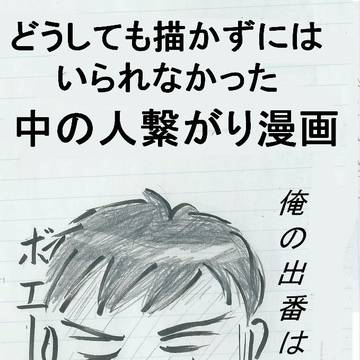 どうしても描かずには
いられなかった
中の人繋がり漫画
俺の出番は
ボエ